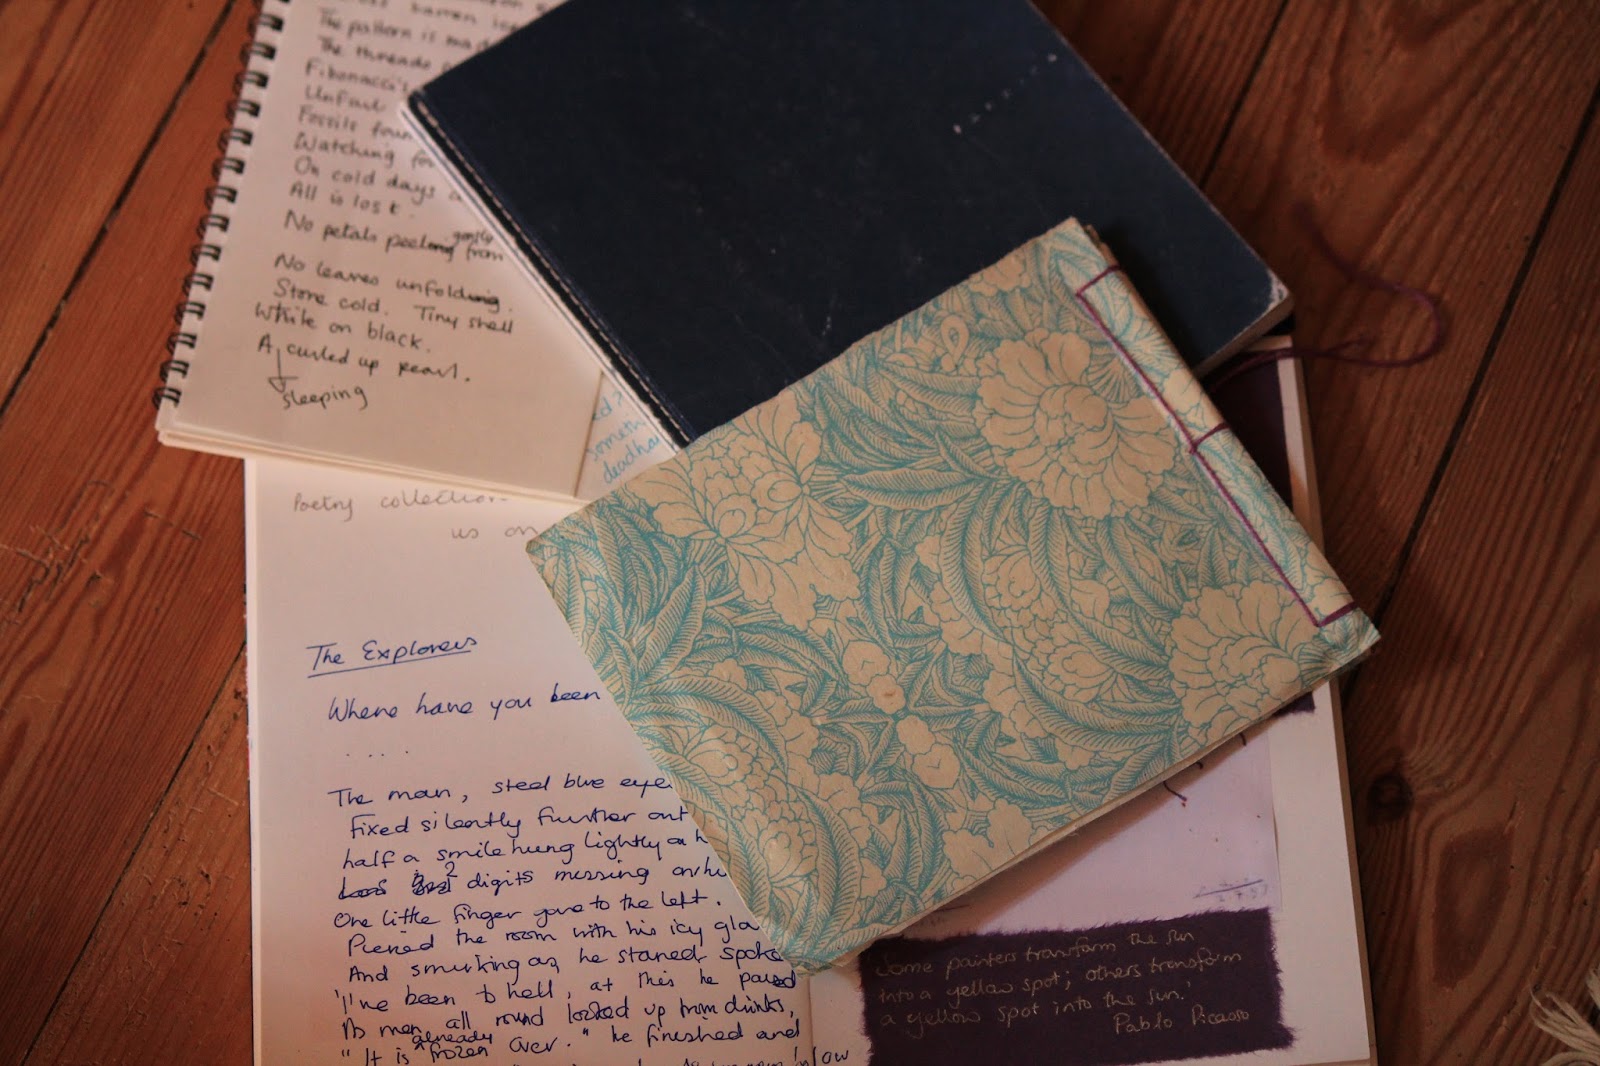 barren
The pattern is
The threads
Fibonacci's
Unfurl
Fossils
Watching for
On cold days
All is lost.
gently
No petals peeling from
No leaves unfolding.
Stone cold. Tiny shell
White on black.
A curled up pearl.
sleeping
someth
deadha
Poetry collection
us on
The Explorers
Where have you been
.....
The man, steel blue eye
Fixed silently further out
half a smile hung lightly on h
2 digits missing on hi
One little finger gone to the left.
Pierced the room with his icy gla
And smirking as he stared, spoke
'I've been to hell, at this he paused
As men all round looked up from drinks,
already
"It is frozen over." he finished and
Some painters transform the sun
into a yellow spot; others transform
a yellow spot into the sun.'
Pablo Picasso